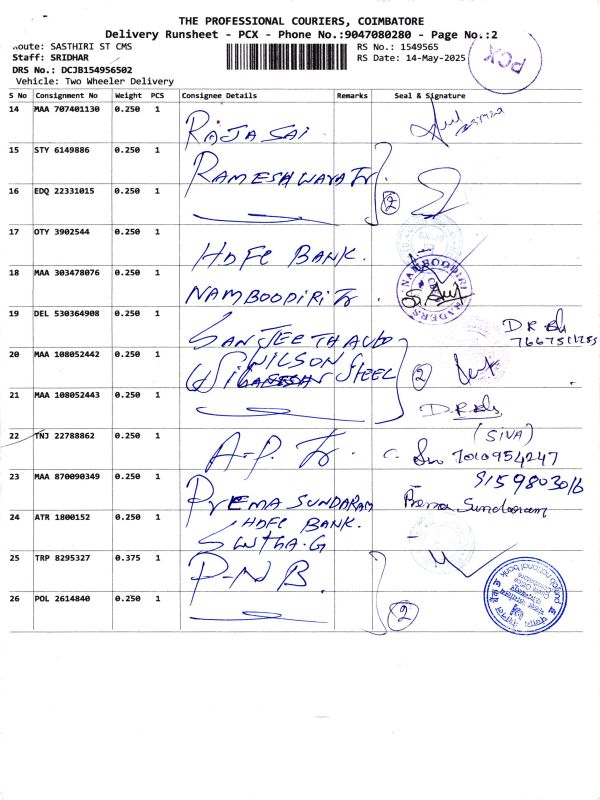 THE PROFESSIONAL COURIERS, COIMBATORE
Delivery Runsheet - PCX - Phone No.:9047080280 - Page No.:2
Route: SASTHIRI ST CMS
RS No.: 1549565
Staff: SRIDHAR
RS Date: 14-May-2025
PCX
DRS No.: DCJB154956502
Vehicle: Two Wheeler Delivery
S No Consignment No Weight PCS Consignee Details Remarks Seal & Signature
14 MAA 707401130 0.250 1
RAJA SAI
15 STY 6149886 0.250 1
RAMESHWARA Tr
16 EDQ 22331015 0.250 1
2
17 OTY 3902544 0.250 1
HDFC BANK.
18 MAA 303478076 0.250 1
NAMBOODIRI Tr
NAMBOODIRI TRADERS
19 DEL 530364908 0.250 1
SANJEETH AUTO
D.R
20 MAA 108052442 0.250 1
WILSON
STEEL
2
21 MAA 108052443 0.250 1
D.R
22 TNJ 22788862 0.250 1
A.P. Tr.
(SIVA)
7010954247
23 MAA 870090349 0.250 1
PREMA SUNDARAM
9159803016
Prema Sundaram
24 ATR 1800152 0.250 1
HDFC BANK.
SWTHA.G
25 TRP 8295327 0.375 1
P-N B.
26 POL 2614840 0.250 1
2